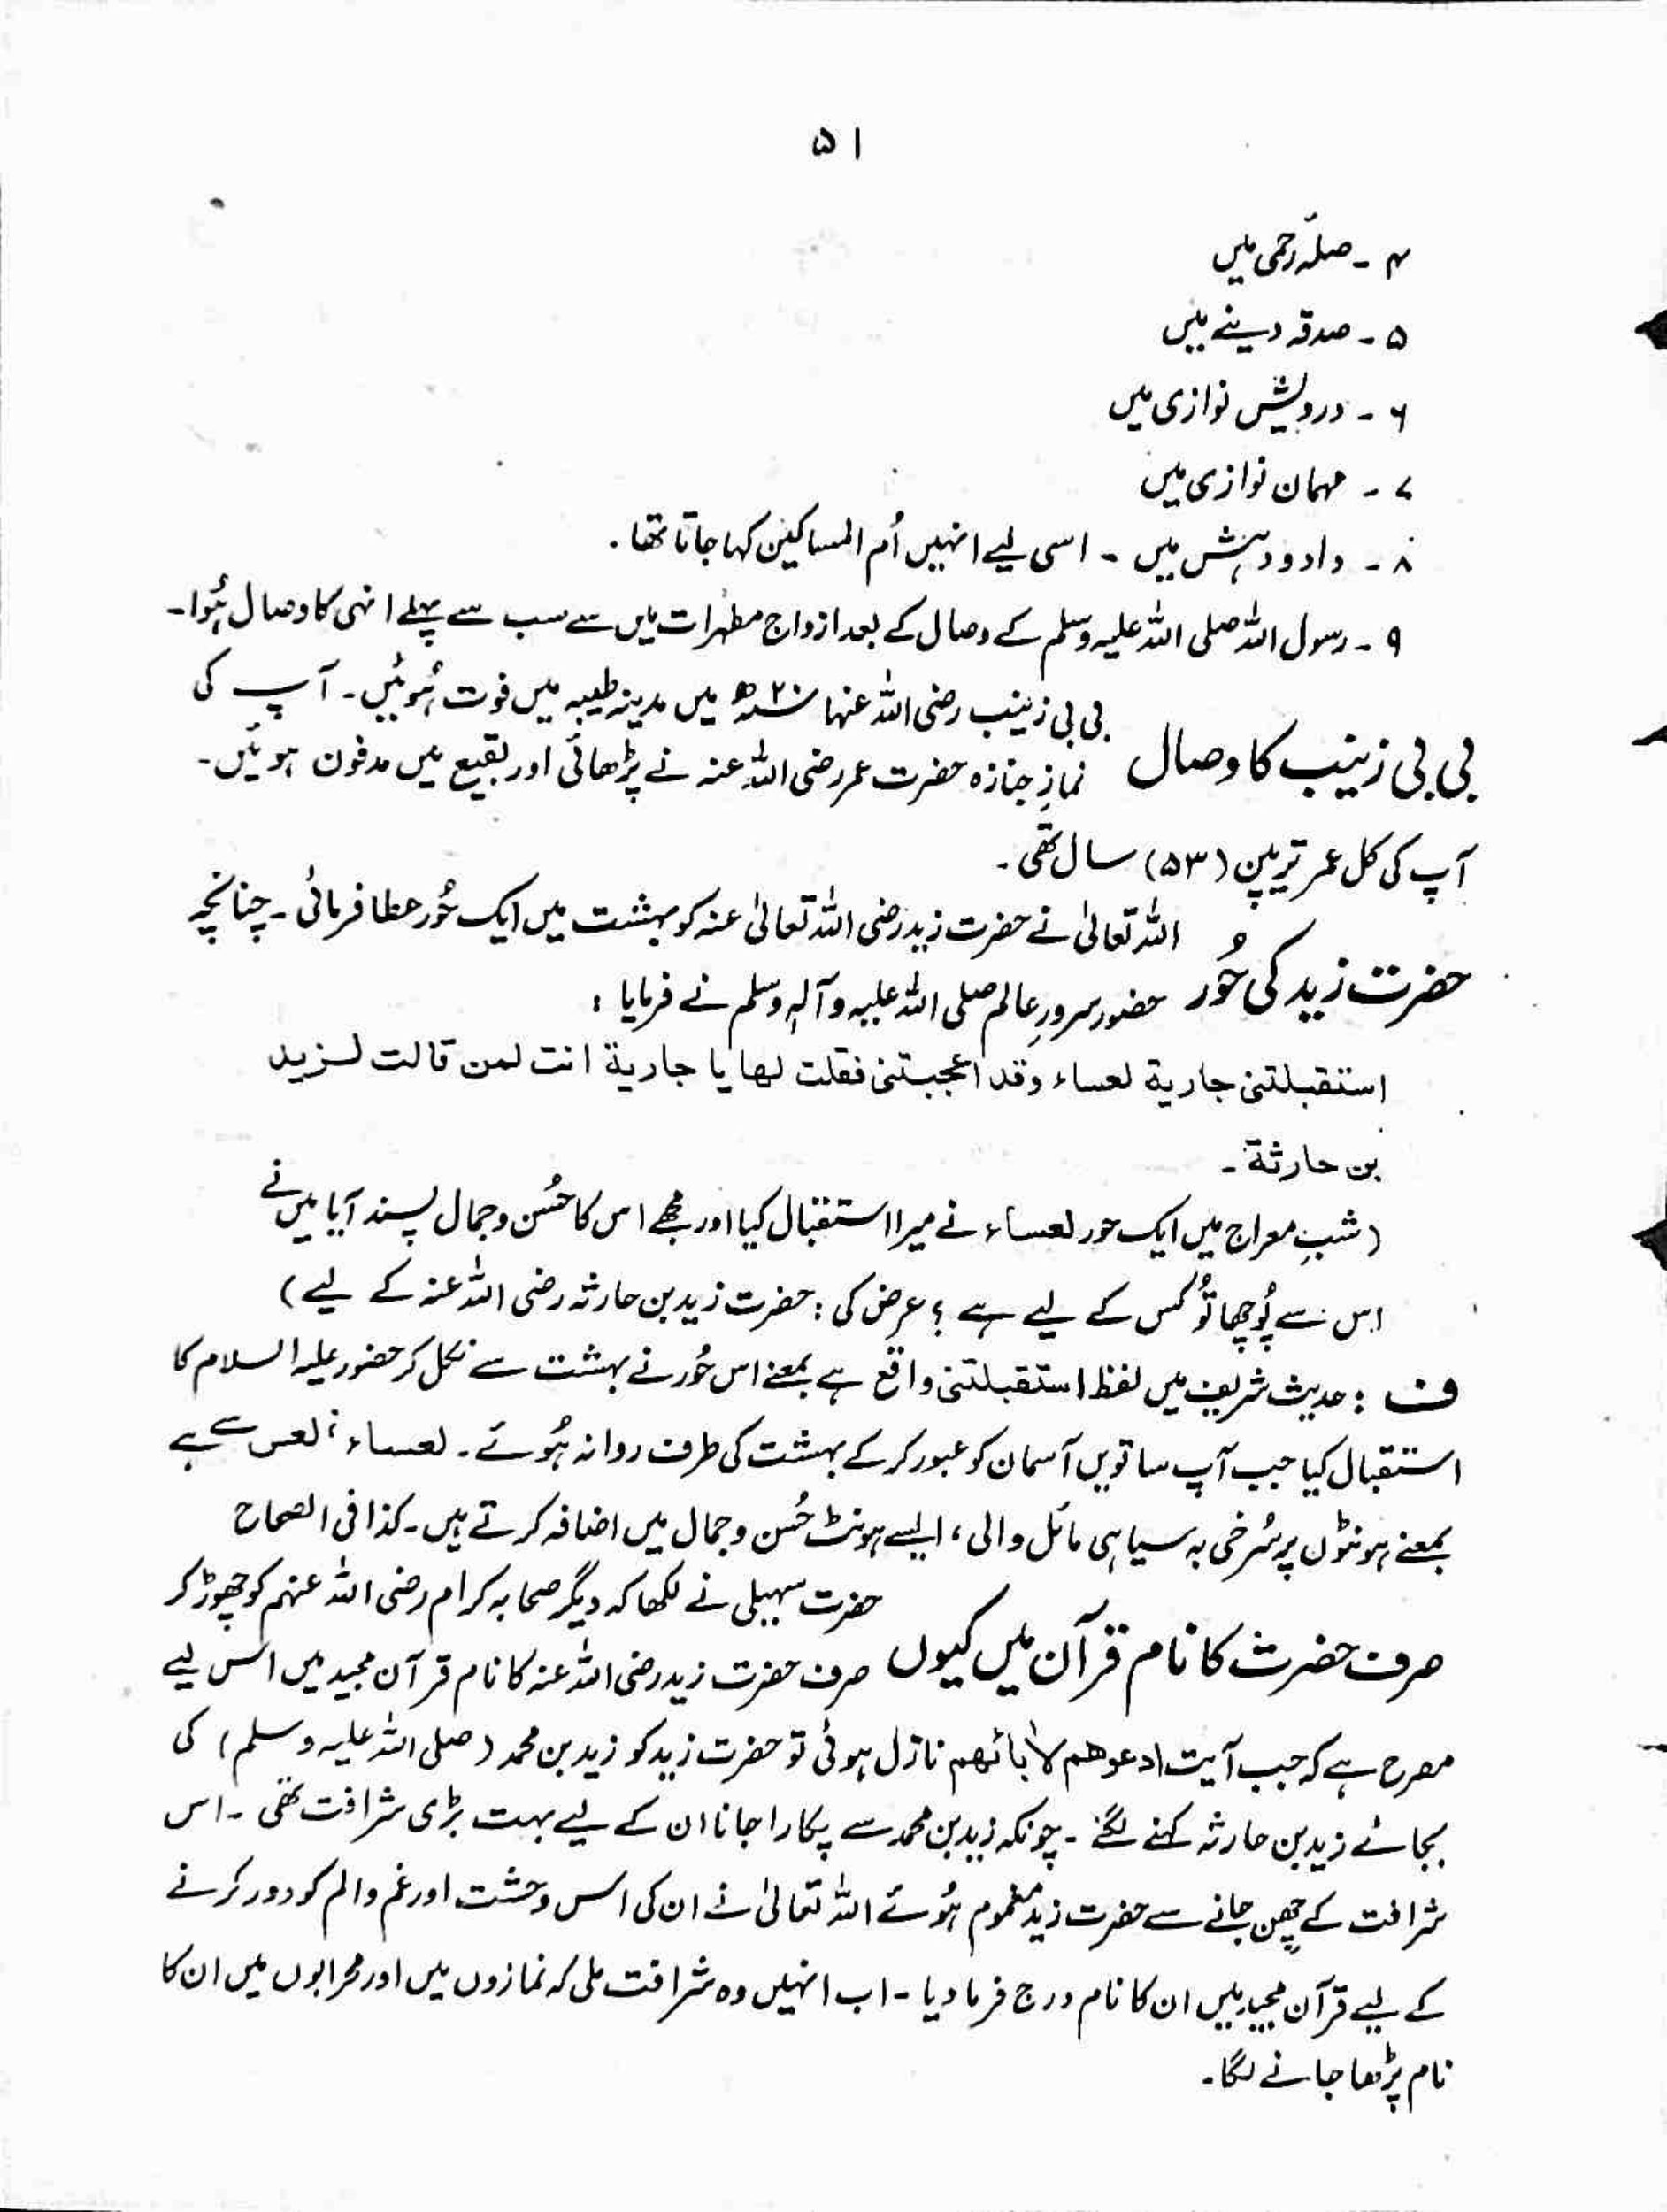 ۵۱
۴ ـ صلہ رحمی میں
۵ ـ صدقہ دینے میں
۶ ـ درویش نوازی میں
۷ ـ مہمان نوازی میں
۸ ـ دادودہش میں ـ اسی لیے انہیں اُم المساکین کہا جاتا تھا ۔
۹ ـ رسول اللہ صلی اللہ علیہ وسلم کے وصال کے بعد ازواج مطہرات میں سے سب سے پہلے انہی کا وصال ہُوا ـ
بی بی زینب کا وصال بی بی زینب رضی اللہ عنہا ۲۰ھ میں مدینہ طیبہ میں فوت ہُوئیں ـ آپ کی
نمازِ جنازہ حضرت عمر رضی اللہ عنہ نے پڑھائی اور بقیع میں مدفون ہوئیں ـ
آپ کی کل عمر ترپن (۵۳) سال تھی ۔
حضرت زید کی حُور اللہ تعالیٰ نے حضرت زید رضی اللہ تعالیٰ عنہ کو بہشت میں ایک حُور عطا فرمائی ـ چنانچہ
حضور سرورِ عالم صلی اللہ علیہ وآلہ وسلم نے فرمایا :
استقبلتنی جاریة لعساء وقد اعجبتنی فقلت لھا یا جاریة انت لمن قالت لزید
بن حارثة ـ
(شبِ معراج میں ایک حور لعساء نے میرا استقبال کیا اور مجھے اس کا حُسن وجمال پسند آیا میں نے
اس سے پُوچھا تُو کس کے لیے ہے ؟ عرض کی : حضرت زید بن حارثہ رضی اللہ عنہ کے لیے)
ف : حدیث شریف میں لفظ استقبلتنی واقع ہے بمعنے اس حُور نے بہشت سے نکل کر حضور علیہ السلام کا
استقبال کیا جب آپ ساتویں آسمان کو عبور کر کے بہشت کی طرف روانہ ہُوئے ۔ لعساء، لعس سے ہے
بمعنے ہونٹوں پر سُرخی بہ سیاہی مائل والی ، ایسے ہونٹ حُسن وجمال میں اضافہ کرتے ہیں ۔ کذا فی الصحاح
صرف حضرت کا نام قرآن میں کیوں حضرت سہیلی نے لکھا کہ دیگر صحابہ کرام رضی اللہ عنہم کو چھوڑ کر
صرف حضرت زید رضی اللہ عنہ کا نام قرآن مجید میں اس لیے
مصرح ہے کہ جب آیت ادعوھم لاٰبائھم نازل ہوئی تو حضرت زید کو زید بن محمد (صلی اللہ علیہ وسلم) کی
بجائے زید بن حارثہ کہنے لگے ـ چونکہ زید بن محمد سے پکارا جانا ان کے لیے بہت بڑی شرافت تھی ـ اس
شرافت کے چھن جانے سے حضرت زید مغموم ہُوئے اللہ تعالیٰ نے ان کی اس وحشت اور غم والم کو دور کرنے
کے لیے قرآن مجید میں ان کا نام درج فرما دیا ـ اب انہیں وہ شرافت ملی کہ نمازوں میں اور محرابوں میں ان کا
نام پڑھا جانے لگا ـ